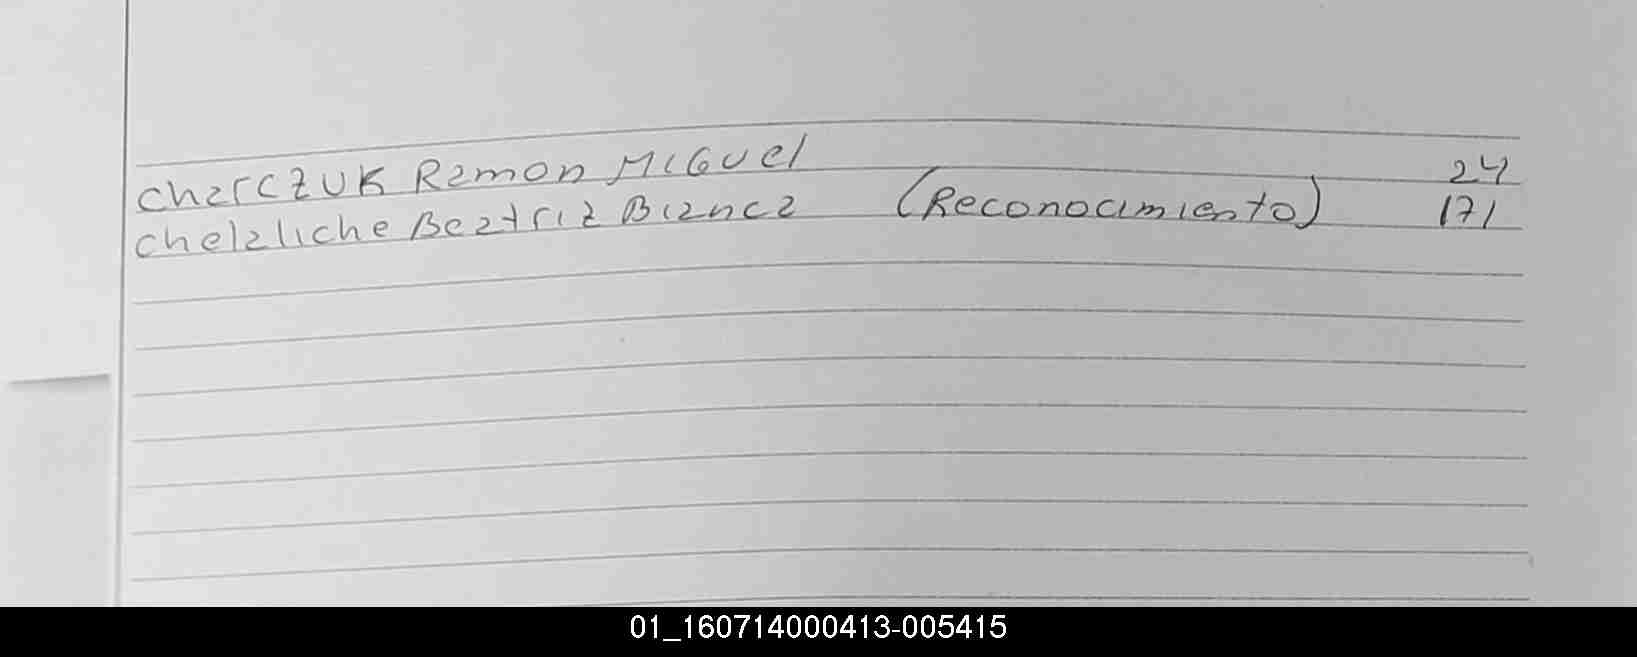 CharCZUK Ramon MIGUel 24
Chelaliche Beatriz Bianca (Reconocimiento) 171
01_160714000413-005415